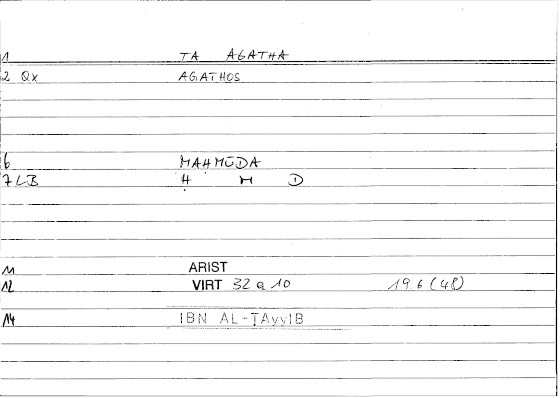 1 TA AGATHA
2 Qx AGATHOS
6 MAḤMŪDA
7 LB Ḥ M D
11 ARIST
12 VIRT 32 a 10 19.6 (48)
14 IBN AL-ṬAyyIB